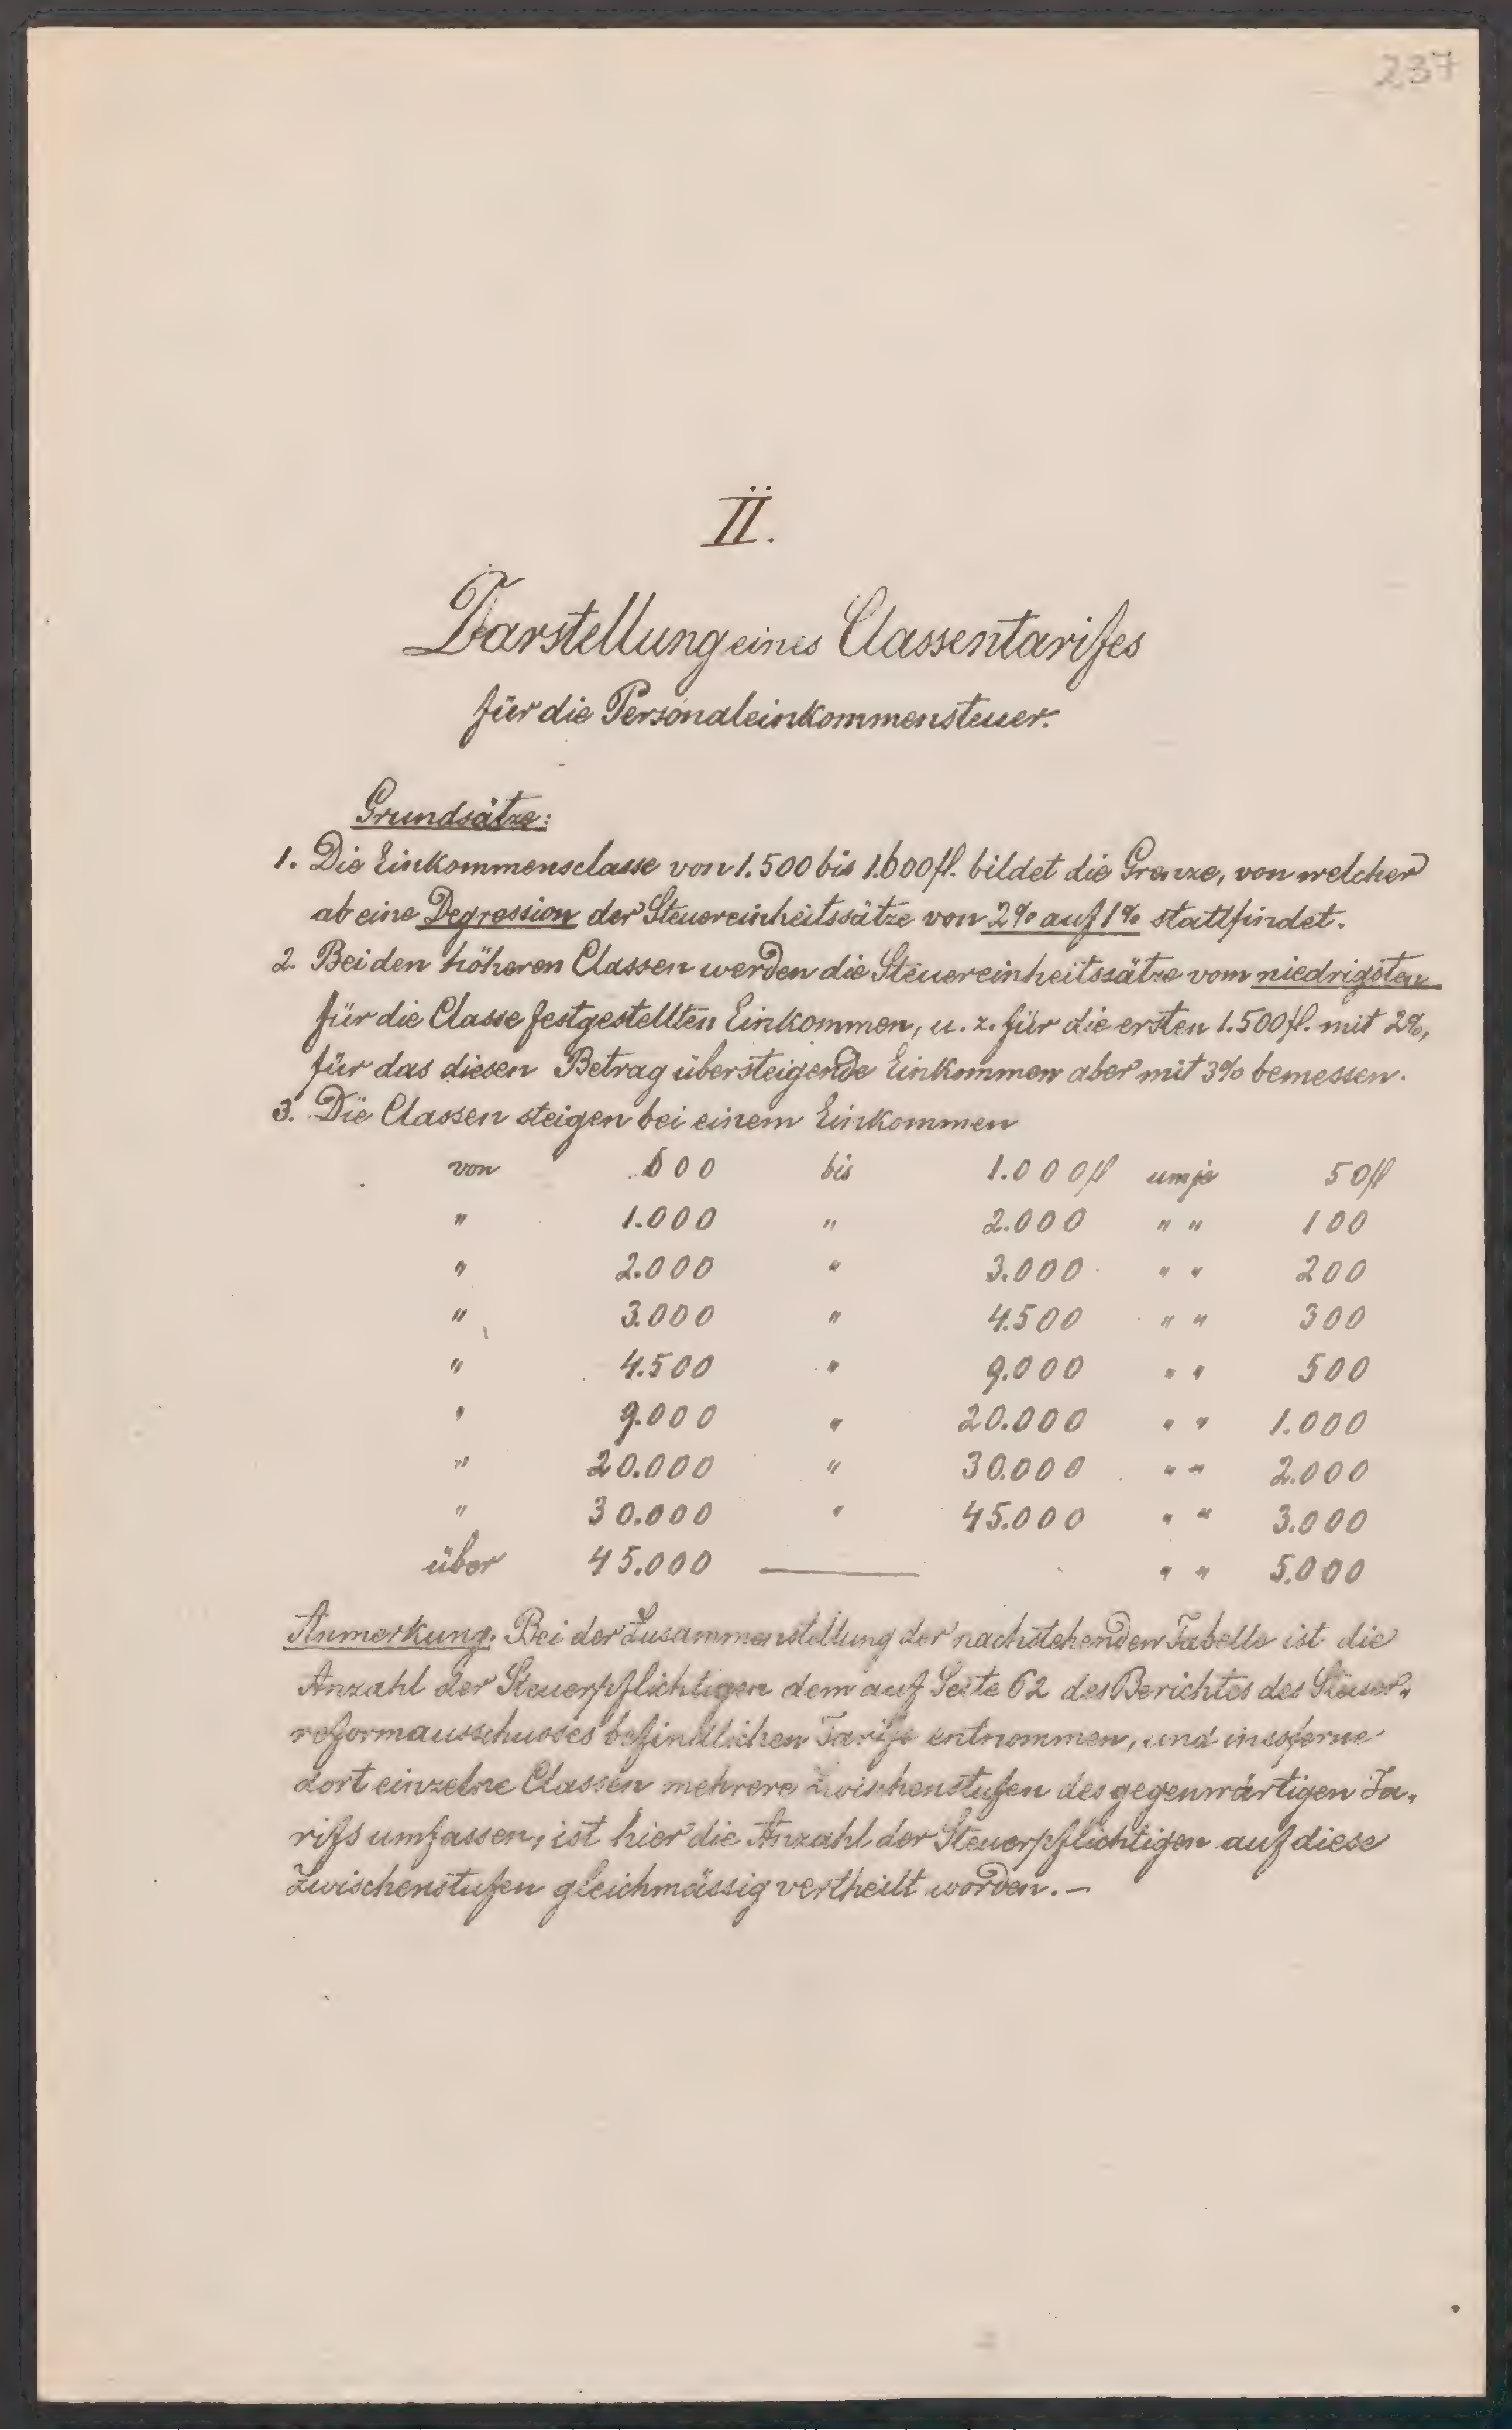 237
II.
Darstellung eines Classentarifes
für die Personaleinkommensteuer.
Grundsätze:
1. Die Einkommensclasse von 1.500 bis 1.600 fl. bildet die Grenze, von welcher
ab eine Degression der Steuereinheitssätze von 2% auf 1% stattfindet.
2. Bei den höheren Classen werden die Steuereinheitssätze vom niedrigsten
für die Classe festgestellten Einkommen, u. z. für die ersten 1.500 fl. mit 2%,
für das diesen Betrag übersteigende Einkommen aber mit 3% bemessen.
3. Die Classen steigen bei einem Einkommen
von 600 bis 1.000 fl um je 50 fl
" 1.000 " 2.000 " " 100
" 2.000 " 3.000 " " 200
" 3.000 " 4.500 " " 300
" 4.500 " 9.000 " " 500
" 9.000 " 20.000 " " 1.000
" 20.000 " 30.000 " " 2.000
" 30.000 " 45.000 " " 3.000
über 45.000 — " " 5.000
Anmerkung. Bei der Zusammenstellung der nachstehenden Tabelle ist die
Anzahl der Steuerpflichtigen dem auf Seite 62 des Berichtes des Steuer-
reformausschusses befindlichen Tarife entnommen, und insoferne
dort einzelne Classen mehrere Zwischenstufen des gegenwärtigen Ta-
rifs umfassen, ist hier die Anzahl der Steuerpflichtigen auf diese
Zwischenstufen gleichmässig vertheilt worden. —